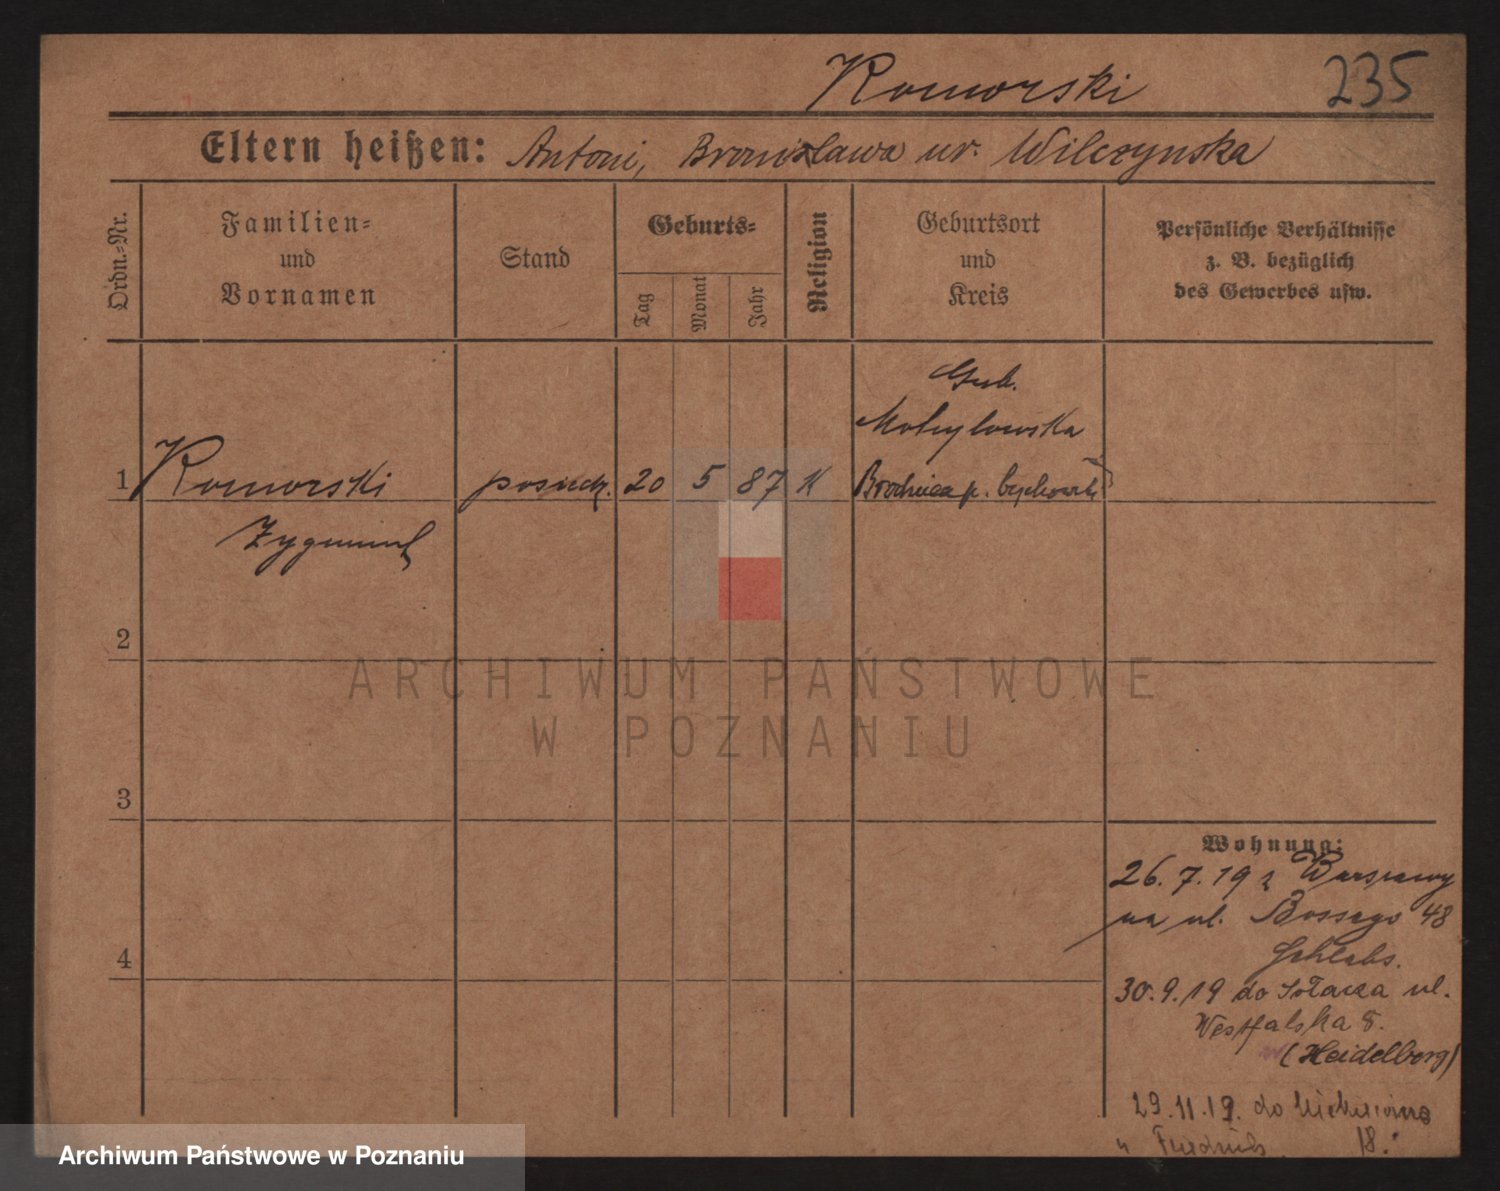 Komorski 235
Eltern heißen: Antoni, Bronisława ur. Wilczynska
Ordn.-Nr.
Familien-
und
Vornamen
Stand
Geburts-
Tag
Monat
Jahr
Religion
Geburtsort
und
Kreis
Persönliche Verhältnisse
z. B. bezüglich
des Gewerbes usw.
Gub.
1 Komorski posiedz. 20 5 87 K p.
Zygmunt
2
3
4
Wohnung:
26.7.19 z Warszawy
na ul. 48
30.9.19 do Sołacza ul.
Westfalska 8.
(Heidelberg)
29.11.19. do
18.
ARCHIWUM PAŃSTWOWE
W POZNANIU
Archiwum Państwowe w Poznaniu